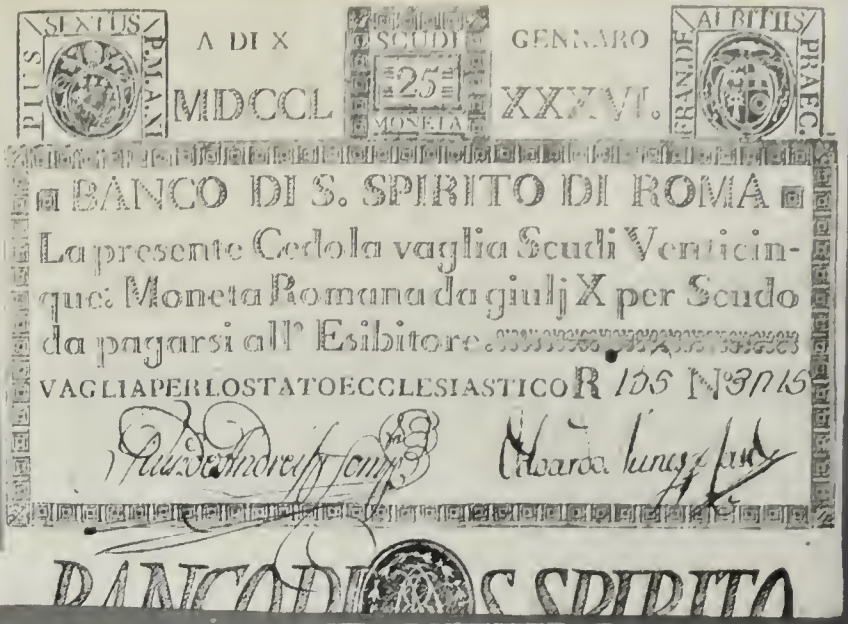 PIUS SEXTUS P.M.A.XI
A DI X
SCUDI
25
MONETA
GENNARO
FRAN.DE ALBITIIS PRAEC.
MDCCL XXXVI.
BANCO DI S. SPIRITO DI ROMA
La presente Cedola vaglia Scudi Venticin-
que: Moneta Romana da giulj X per Scudo
da pagarsi all' Esibitore.
VAGLIAPERLOSTATOECCLESIASTICO R 105 N.
BANCO DI S. SPIRITO